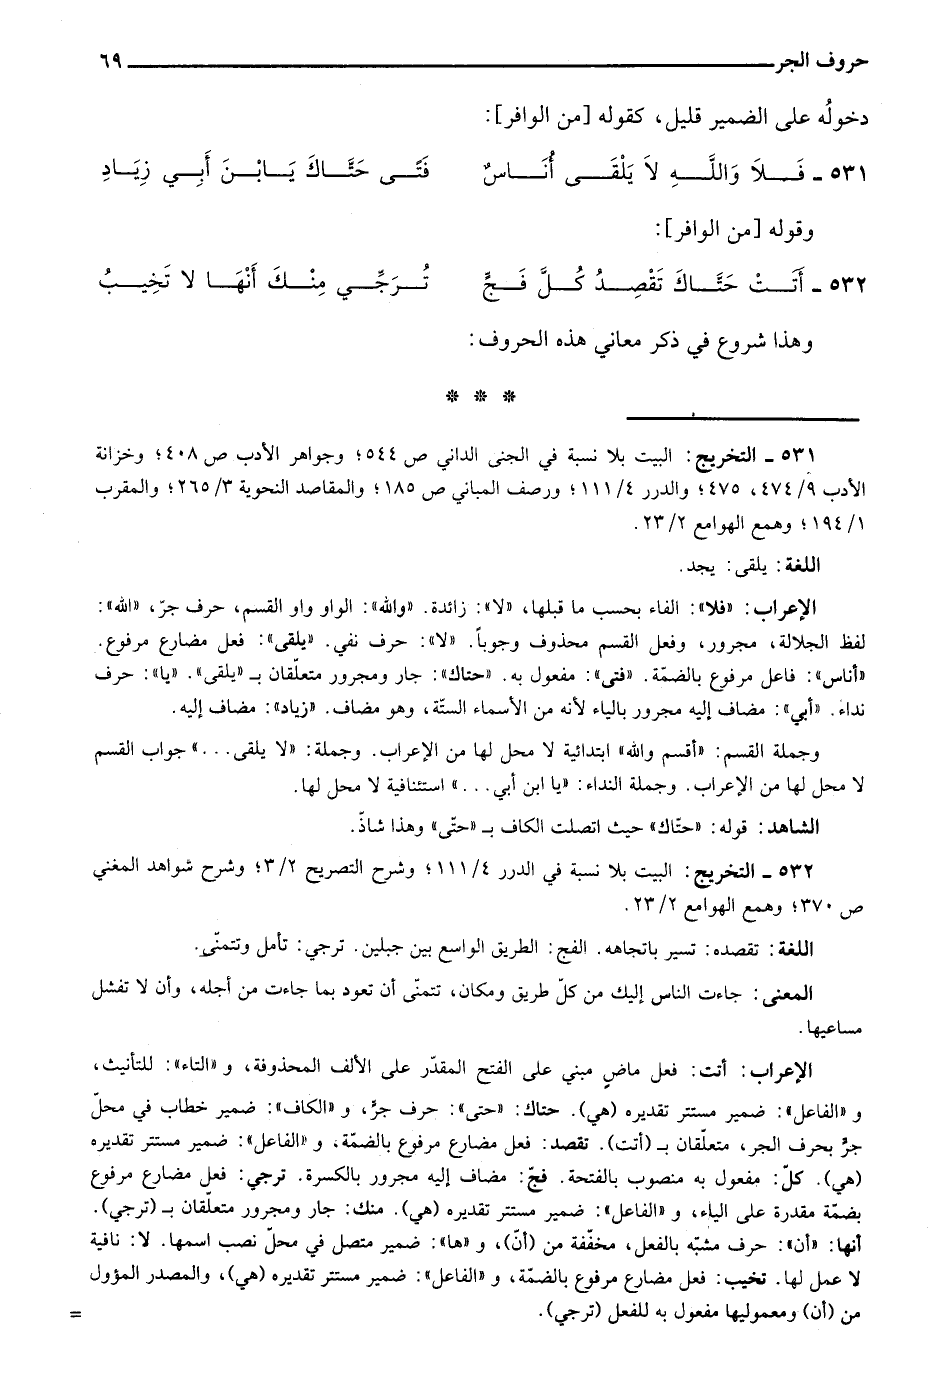 حروف الجر ٦٩
دخولُه على الضمير قليل، كقوله [من الوافر]:
٥٣١ ـ فَـلاَ وَاللَّـهِ لاَ يَلْقَـى أُنَـاسٌ فَتًـى حَتَّـاكَ يَـابْـنَ أَبِـي زِيَـادِ
وقوله [من الوافر]:
٥٣٢ ـ أَتَـتْ حَتَّـاكَ تَقْصِـدُ كُـلَّ فَـجٍّ تُـرَجِّـي مِنْـكَ أَنْهَـا لا تَخِيـبُ
وهذا شروع في ذكر معاني هذه الحروف:
* * *
٥٣١ ـ التخريج: البيت بلا نسبة في الجنى الداني ص ٥٤٤؛ وجواهر الأدب ص ٤٠٨؛ وخزانة
الأدب ٩/ ٤٧٤، ٤٧٥؛ والدرر ٤/ ١١١؛ ورصف المباني ص ١٨٥؛ والمقاصد النحوية ٣/ ٢٦٥؛ والمقرب
١/ ١٩٤؛ وهمع الهوامع ٢/ ٢٣.
اللغة: يلقى: يجد.
الإعراب: «فلا»: الفاء بحسب ما قبلها، «لا»: زائدة. «والله»: الواو واو القسم، حرف جرّ، «الله»:
لفظ الجلالة، مجرور، وفعل القسم محذوف وجوباً. «لا»: حرف نفي. «يلقى»: فعل مضارع مرفوع.
«أناس»: فاعل مرفوع بالضمّة. «فتى»: مفعول به. «حتاك»: جار ومجرور متعلّقان بـ «يلقى». «يا»: حرف
نداء. «أبي»: مضاف إليه مجرور بالياء لأنه من الأسماء الستّة، وهو مضاف. «زياد»: مضاف إليه.
وجملة القسم: «أقسم والله» ابتدائية لا محل لها من الإعراب. وجملة: «لا يلقى...» جواب القسم
لا محل لها من الإعراب. وجملة النداء: «يا ابن أبي...» استئنافية لا محل لها.
الشاهد: قوله: «حتّاك» حيث اتصلت الكاف بـ «حتّى» وهذا شاذّ.
٥٣٢ ـ التخريج: البيت بلا نسبة في الدرر ٤/ ١١١؛ وشرح التصريح ٢/ ٣؛ وشرح شواهد المغني
ص ٣٧٠؛ وهمع الهوامع ٢/ ٢٣.
اللغة: تقصده: تسير باتجاهه. الفج: الطريق الواسع بين جبلين. ترجي: تأمل وتتمنّى.
المعنى: جاءت الناس إليك من كلّ طريق ومكان، تتمنّى أن تعود بما جاءت من أجله، وأن لا تفشل
مساعيها.
الإعراب: أتت: فعل ماضٍ مبني على الفتح المقدّر على الألف المحذوفة، و «التاء»: للتأنيث،
و «الفاعل»: ضمير مستتر تقديره (هي). حتاك: «حتى»: حرف جرّ، و «الكاف»: ضمير خطاب في محلّ
جرّ بحرف الجر، متعلّقان بـ (أتت). تقصد: فعل مضارع مرفوع بالضمّة، و «الفاعل»: ضمير مستتر تقديره
(هي). كلّ: مفعول به منصوب بالفتحة. فجّ: مضاف إليه مجرور بالكسرة. ترجي: فعل مضارع مرفوع
بضمّة مقدرة على الياء، و «الفاعل»: ضمير مستتر تقديره (هي). منك: جار ومجرور متعلقان بـ (ترجي).
أنها: «أن»: حرف مشبّه بالفعل، مخفّفة من (أنّ)، و «ها»: ضمير متصل في محلّ نصب اسمها. لا: نافية
لا عمل لها. تخيب: فعل مضارع مرفوع بالضمّة، و «الفاعل»: ضمير مستتر تقديره (هي)، والمصدر المؤول
من (أن) ومعموليها مفعول به للفعل (ترجي). =